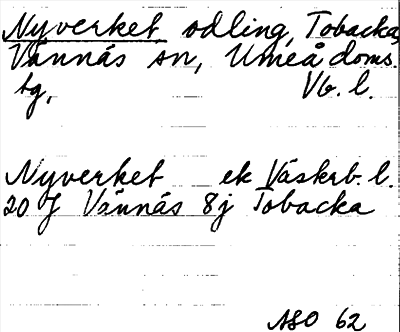 Nyverket odling, Tobacka,
Vännäs sn, Umeå doms.
tg, Vb. l.
Nyverket ek Väskrb. l.
20 J Vännäs 8j Tobacka
ASO 62